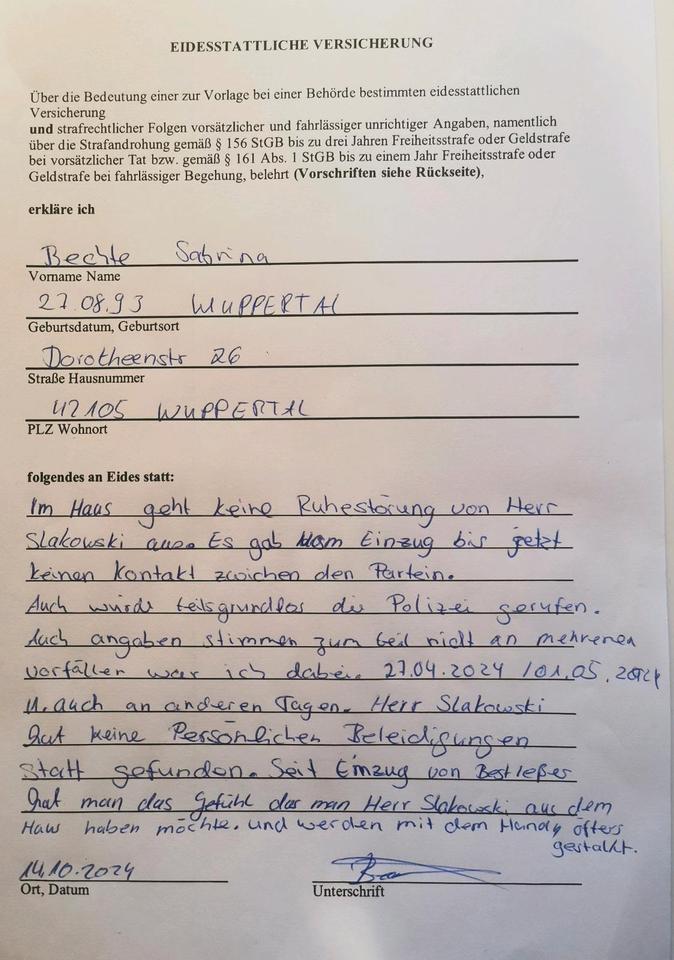 EIDESSTATTLICHE VERSICHERUNG
Über die Bedeutung einer zur Vorlage bei einer Behörde bestimmten eidesstattlichen
Versicherung
und strafrechtlicher Folgen vorsätzlicher und fahrlässiger unrichtiger Angaben, namentlich
über die Strafandrohung gemäß § 156 StGB bis zu drei Jahren Freiheitsstrafe oder Geldstrafe
bei vorsätzlicher Tat bzw. gemäß § 161 Abs. 1 StGB bis zu einem Jahr Freiheitsstrafe oder
Geldstrafe bei fahrlässiger Begehung, belehrt (Vorschriften siehe Rückseite),
erkläre ich
Bechte Sabrina
Vorname Name
27.08.93 WUPPERTAL
Geburtsdatum, Geburtsort
Dorotheenstr 26
Straße Hausnummer
42105 WUPPERTAL
PLZ Wohnort
folgendes an Eides statt:
Im Haus geht keine Ruhestörung von Herr
Slakowski aus. Es gab Einzug bis jetzt
keinen Kontakt zwichen den Partein.
Auch wurde teilsgrundlos die Polizei gerufen.
Auch angaben stimmen zum teil nicht an mehrenen
vorfällen war ich dabei. 27.04.2024 / 01.05.2024
u. auch an anderen Tagen. Herr Slakowski
hat keine Persönlichen Beleidigungen
statt gefunden. Seit Einzug von
hat man das Gefühl das man Herr Slakowski aus dem
Haus haben möchte. und werden mit dem Handy öfters
gestalkt.
14.10.2024
Ort, Datum
Unterschrift